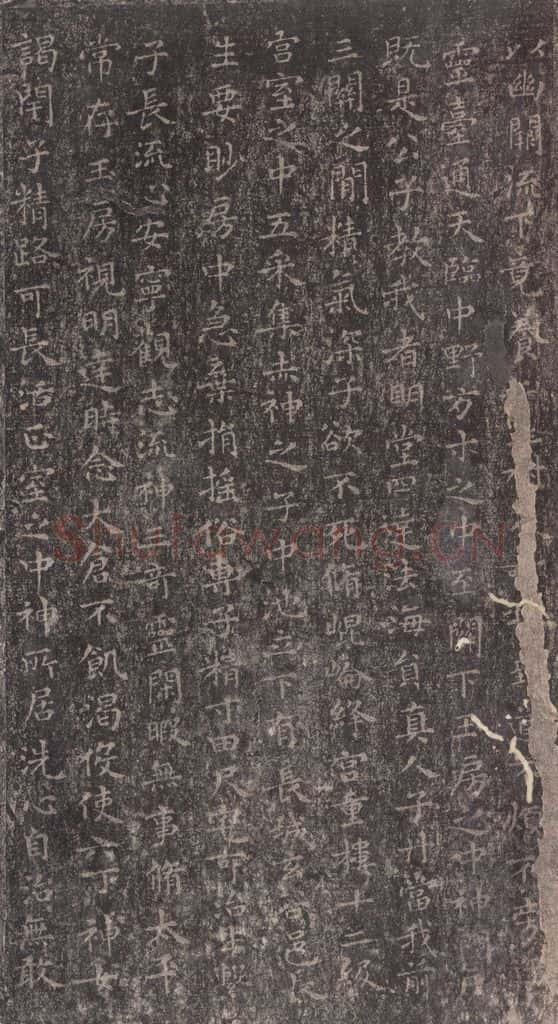 幽關流下竟養
靈臺通天臨中野方寸之中至關下玉房之中神門戶
既是公子教我者明堂四達法海員真人子丹當我前
三關之間精氣深子欲不死脩崐崘絳宮重樓十二級
宮室之中五采集赤神之子中池立下有長城玄谷邑長
生要眇房中急棄捐搖俗專子精寸田尺宅可治生
子長流心安寧觀志流神三奇靈閑暇無事脩太平
常存玉房視明達時念大倉不飢渴役使六丁神女
謁閉子精路可長活正室之中神所居洗心自治無敢
Shufawang.CN